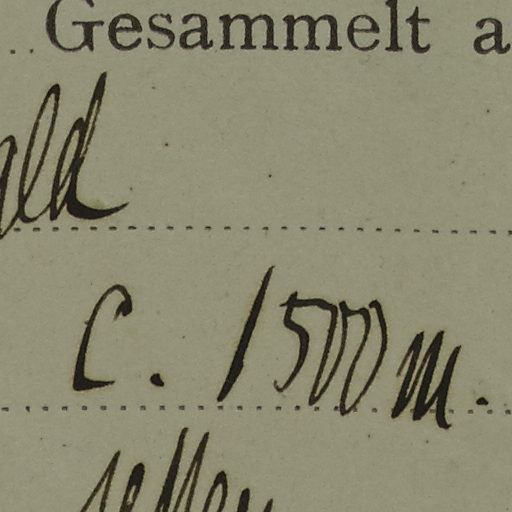 Gesammelt a
ald
c. 1500 m.